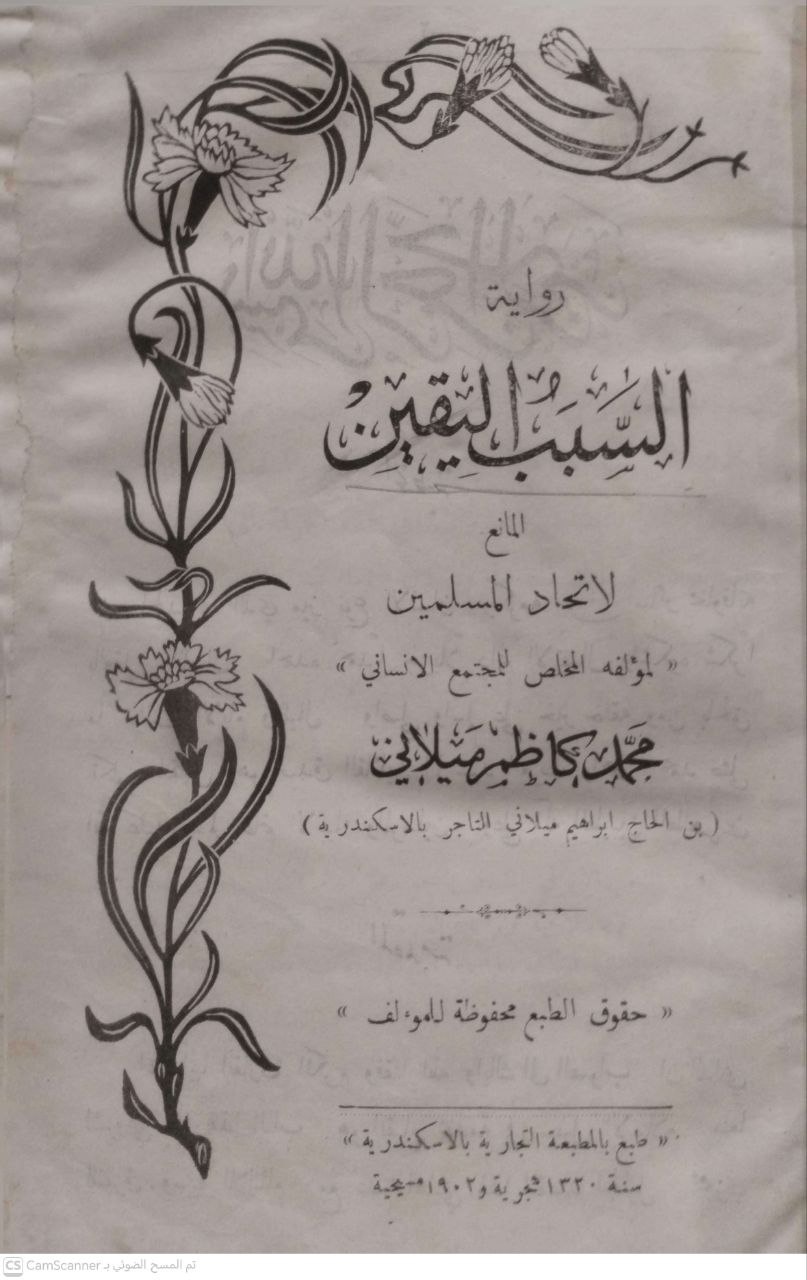 رواية
السَّبَبُ اليَقِين
المانع
لاتحاد المسلمين
« لمؤلفه المخلص للمجتمع الانساني »
محمَّد كاظم ميلاني
( بن الحاج ابراهيم ميلاني التاجر بالاسكندرية )
« حقوق الطبع محفوظة للموءلف »
« طبع بالمطبعة التجارية بالاسكندرية »
سنة ١٣٢٠ هجرية و١٩٠٢ مسيحية
CS CamScanner تم المسح الضوئي بـ